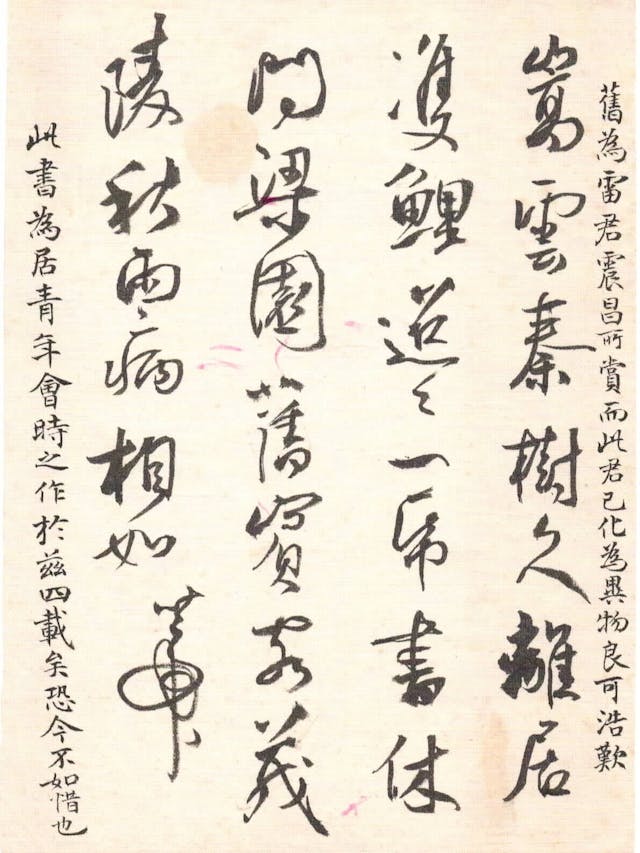 舊為雷君震昌所賞而此君已化為異物良可浩歎
嵩雲秦樹久離居
雙鯉迢々一帋書休
問梁園舊賓客茂
陵秋雨病相如
此書為居青年會時之作於茲四載矣恐今不如惜也